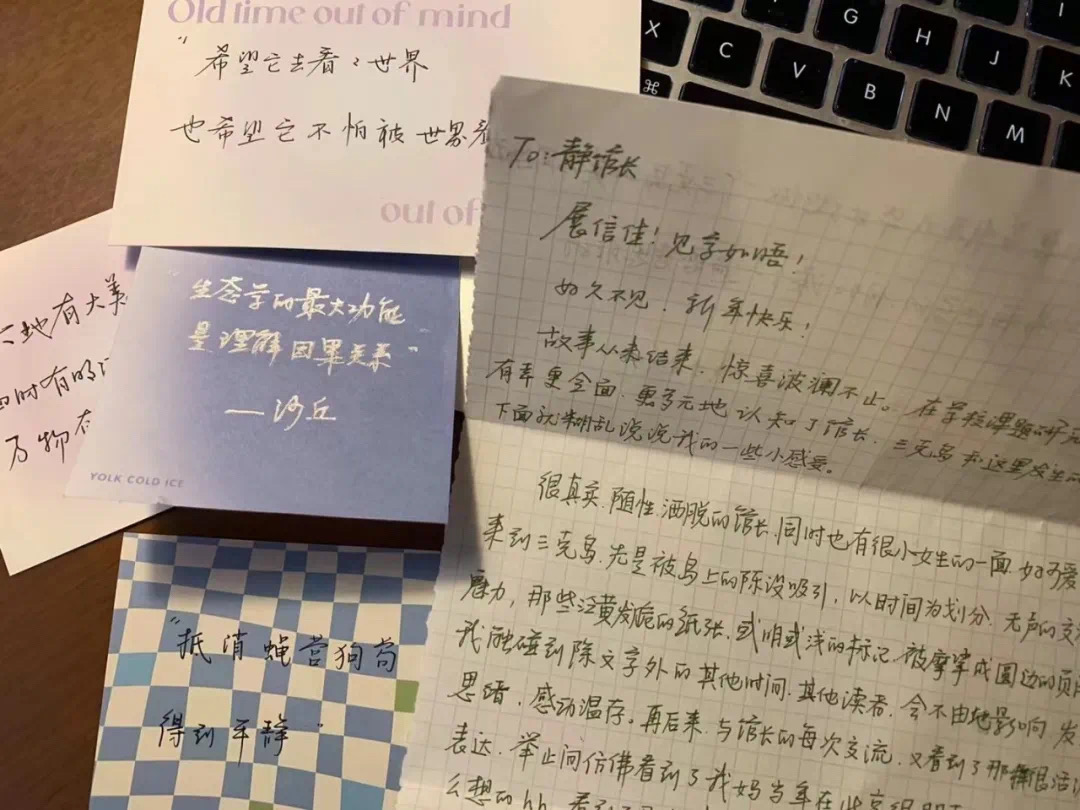 Old time out of mind
"希望它去看看世界
也希望它不怕被世界看
out of
天地有大美
四时有明
万物有
"生态学的最大功能
是理解因果关系"
—沙丘
YOLK COLD ICE
"抵消蝇营狗苟
得到平静"
X C V B G H N J M K I
⌘
To:静馆长
展信佳!见字如晤!
好久不见,新年快乐!
故事从未结束,惊喜波澜不止。在学校课题研究
有幸更全面、更多元地认知了馆长、三克岛和这里发生的
下面就胡乱说说我的一些小感受。
很真实、随性、洒脱的馆长,同时也有很小女生的一面,好可爱
来到三克岛,先是被岛上的陈设吸引,以时间为划分,无声的交
魔力,那些泛黄发脆的纸张,或明或浅的标记,被摩挲成圆边的页
我触碰到除文字外的其他时间、其他读者,会不由地影响 发
思绪,感动温存。再后来,与馆长的每次交流,又看到了那样很活
表达,举止间仿佛看到了我妈当年在
么想的hh,